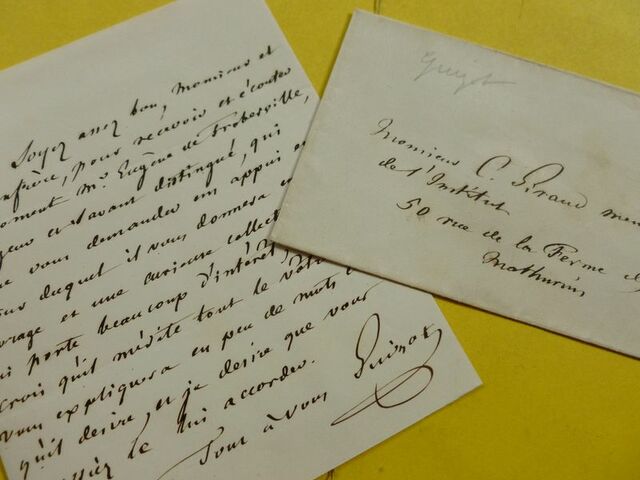 Soyez assez bon, Monsieur et
nfrère, pour recevoir et écouter
oment Mr. Eugène de Froberville,
geur et savant distingué, qui
e vous demander un appui
duquel il vous donnera
rage et une curieuse collect
porte beaucoup d'intérêt,
crois qu'il mérite tout le
vous expliquera en peu de mots
qu'il desire, et je desire que vous
ssiez le lui accorder.
Tout à vous
Guizot
Guizot
Monsieur C. Giraud mem
de l'Institut
50 rue de la Ferme
Mathurins